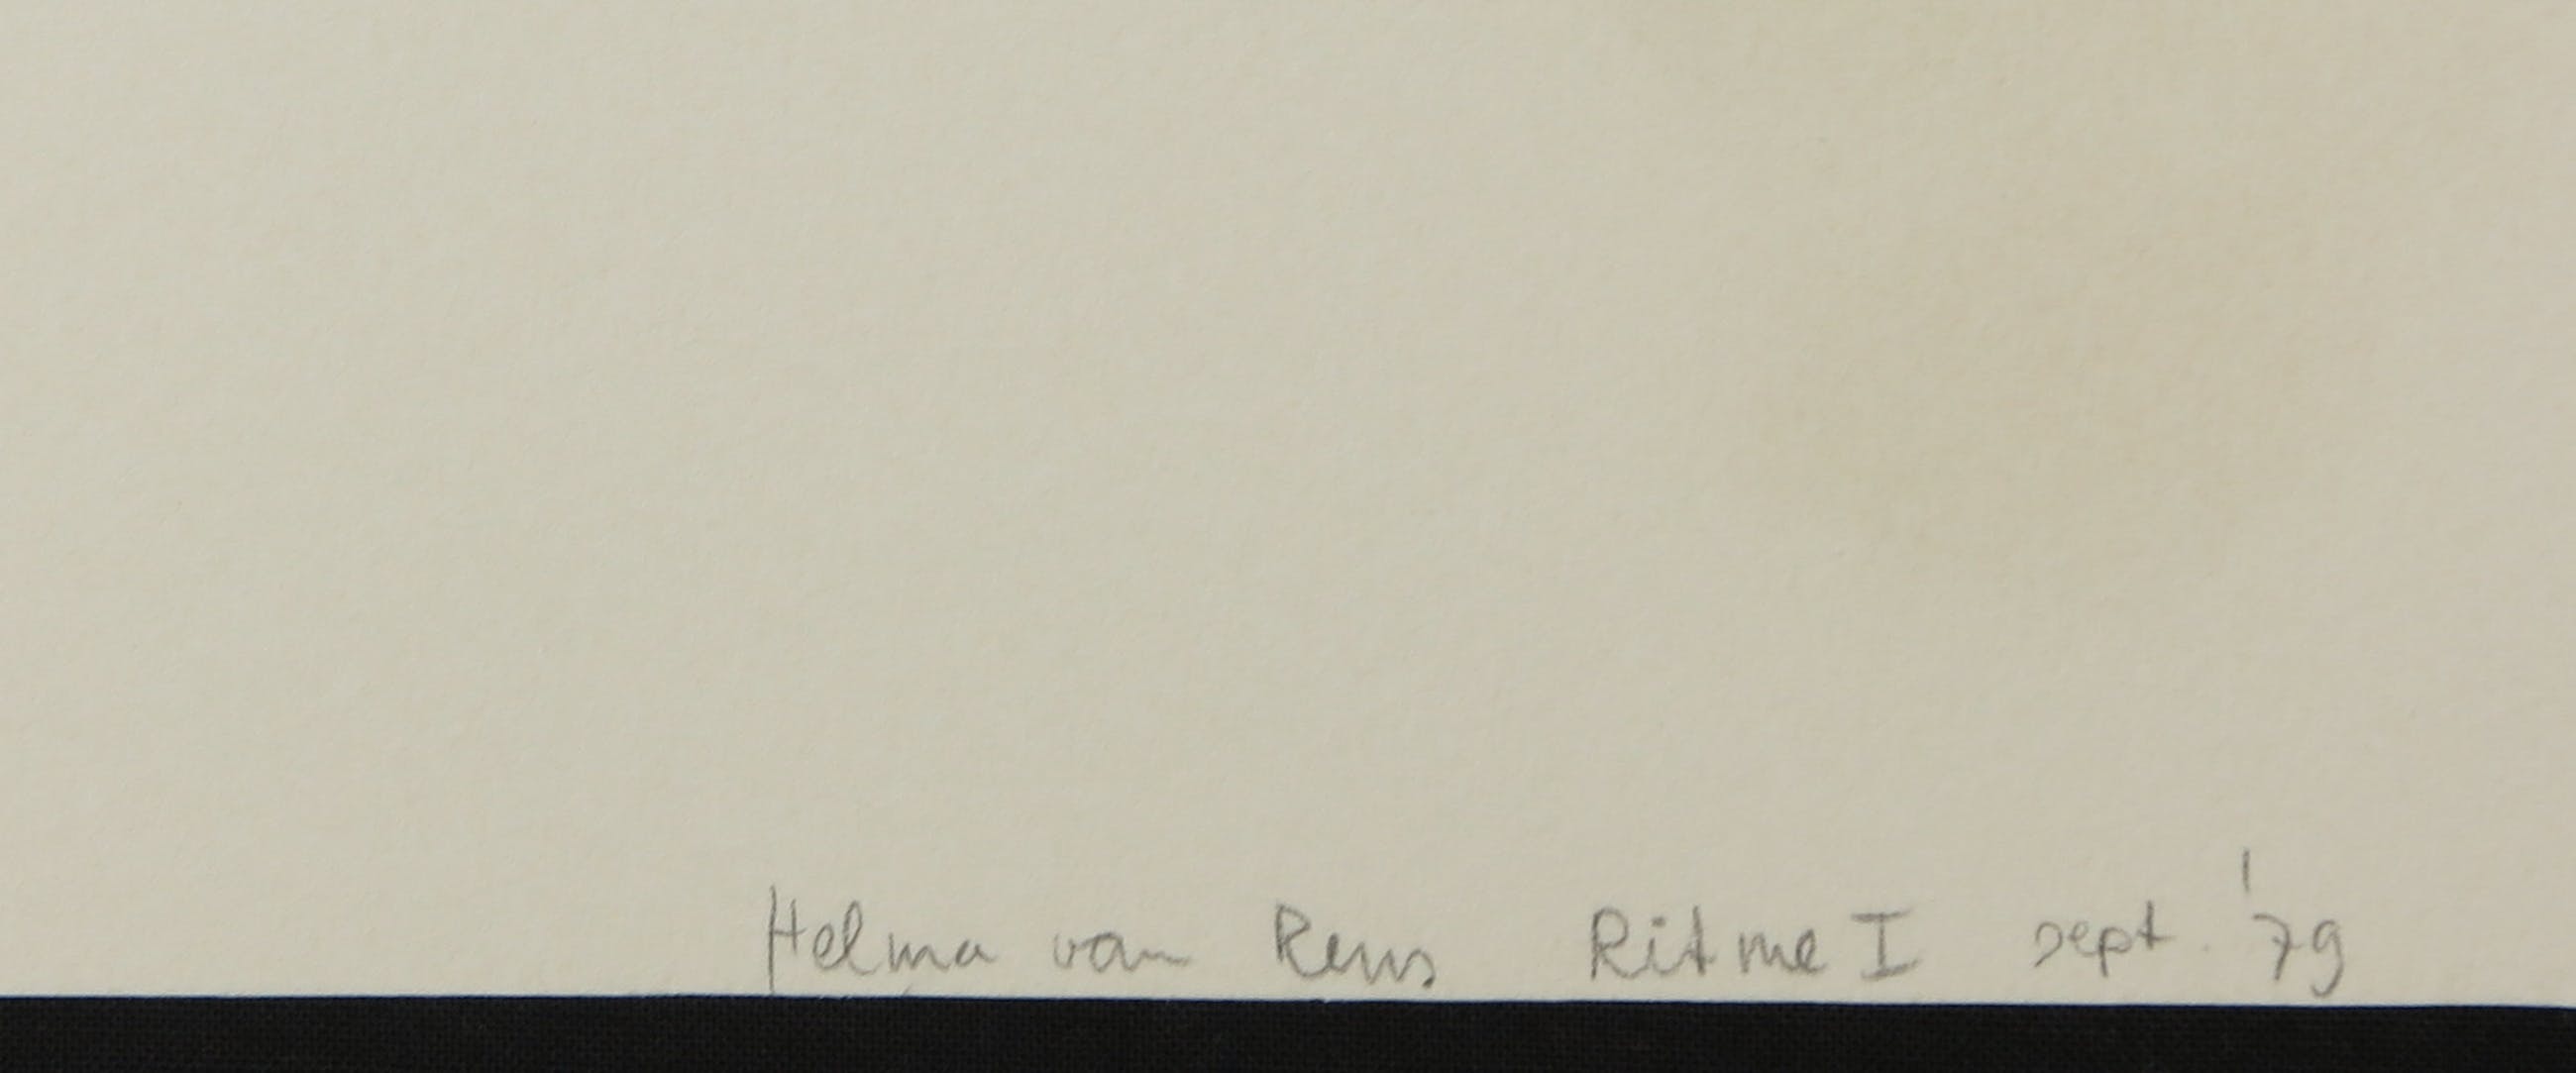 Helma van Rens Ritme I sept. '79